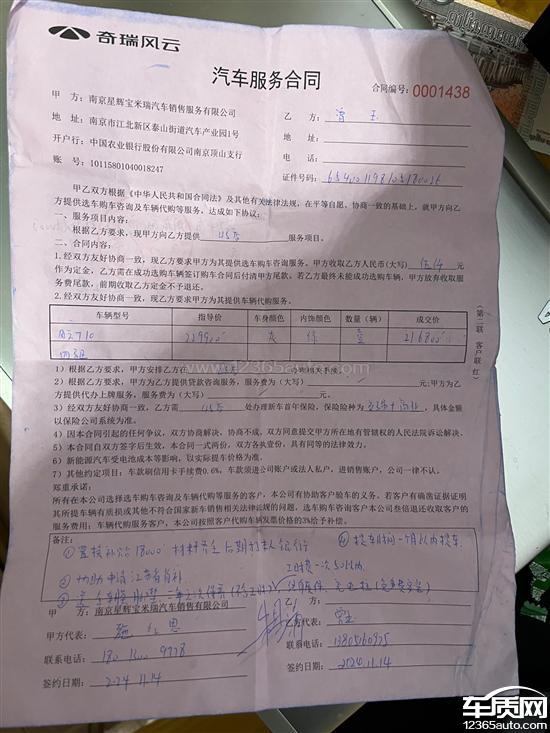 奇瑞风云
汽车服务合同
合同编号：0001438
甲　方：南京星辉宝米瑞汽车销售服务有限公司
地　址：南京市江北新区泰山街道汽车产业园1号
开户行：中国农业银行股份有限公司南京顶山支行
账　号：10115801040018247
乙　方：
地　址：
电　话：
证件号码：
甲乙双方根据《中华人民共和国合同法》及其他有关法律法规，在平等自愿、协商一致的基础上，就甲方向乙
方提供选车购车咨询及车辆代购等服务，达成如下协议：
一、服务项目内容：
根据乙方要求，现甲方向乙方提供 服务项目。
二、合同内容：
1.经双方友好协商一致，现甲方为其提供选车购车咨询服务。甲方收取乙方人民币(大写) 伍仟 元
作为定金，乙方需在成功选购车辆签订购车合同后付清甲方尾款。若乙方最终未能成功选购车辆，甲方放弃收取服
务费尾款，前期收取乙方定金不予退还。
2.经双方友好协商一致，现乙方要求甲方为其提供车辆代购服务。
车辆型号 指导价 车身颜色 内饰颜色 数量（辆） 成交价
风云T10 229900 灰 棕 壹 216800
（第二联 客户联 红）
www.12365auto.com
1）根据乙方要求，甲方安排乙方在
2）根据乙方要求，甲方为乙方提供贷款咨询服务，服务费为（大写） 元;甲方为乙
方提供代办上牌服务，服务费为（大写） 元。
3）经双方友好协商一致，乙方需 处办理新车首年保险，保险险种为 ，具体金额
以保险公司系统为准。
4）因本合同引起的任何争议，双方协商解决，协商不成，双方同意提交甲方所在地有管辖权的人民法院诉讼解决。
5）本合同自双方签字后生效，本合同一式两份，双方各执壹份，具有同等的法律效力。
6）新能源汽车受电池成本等影响，以实际提车价格为准。
7）其他约定项目：车款刷信用卡手续费0.6%，车款须进公司账户或法人私户，进销售账户，公司一律不认。
郑重承诺：
所有在本公司选择选车购车咨询及车辆代购等服务的客户，本公司有协助客户验车的义务。若客户有确凿证据证明
其所提车辆有质损或其他不符合国家新车销售相关法律法规的问题，选车购车咨询客户本公司叁倍退还收取客户的
服务费用；车辆代购服务客户，本公司按照客户代购车辆发票价格的3%给予补偿。
备注：
①置换补贴18000
②协助申请江苏省补
甲　方：南京星辉宝米瑞汽车销售服务有限公司
甲方代表：
联系电话：
签约日期：2024.11.14
乙　方：
乙方代表：
联系电话：
签约日期：2024.11.14
车质网
12365auto.com